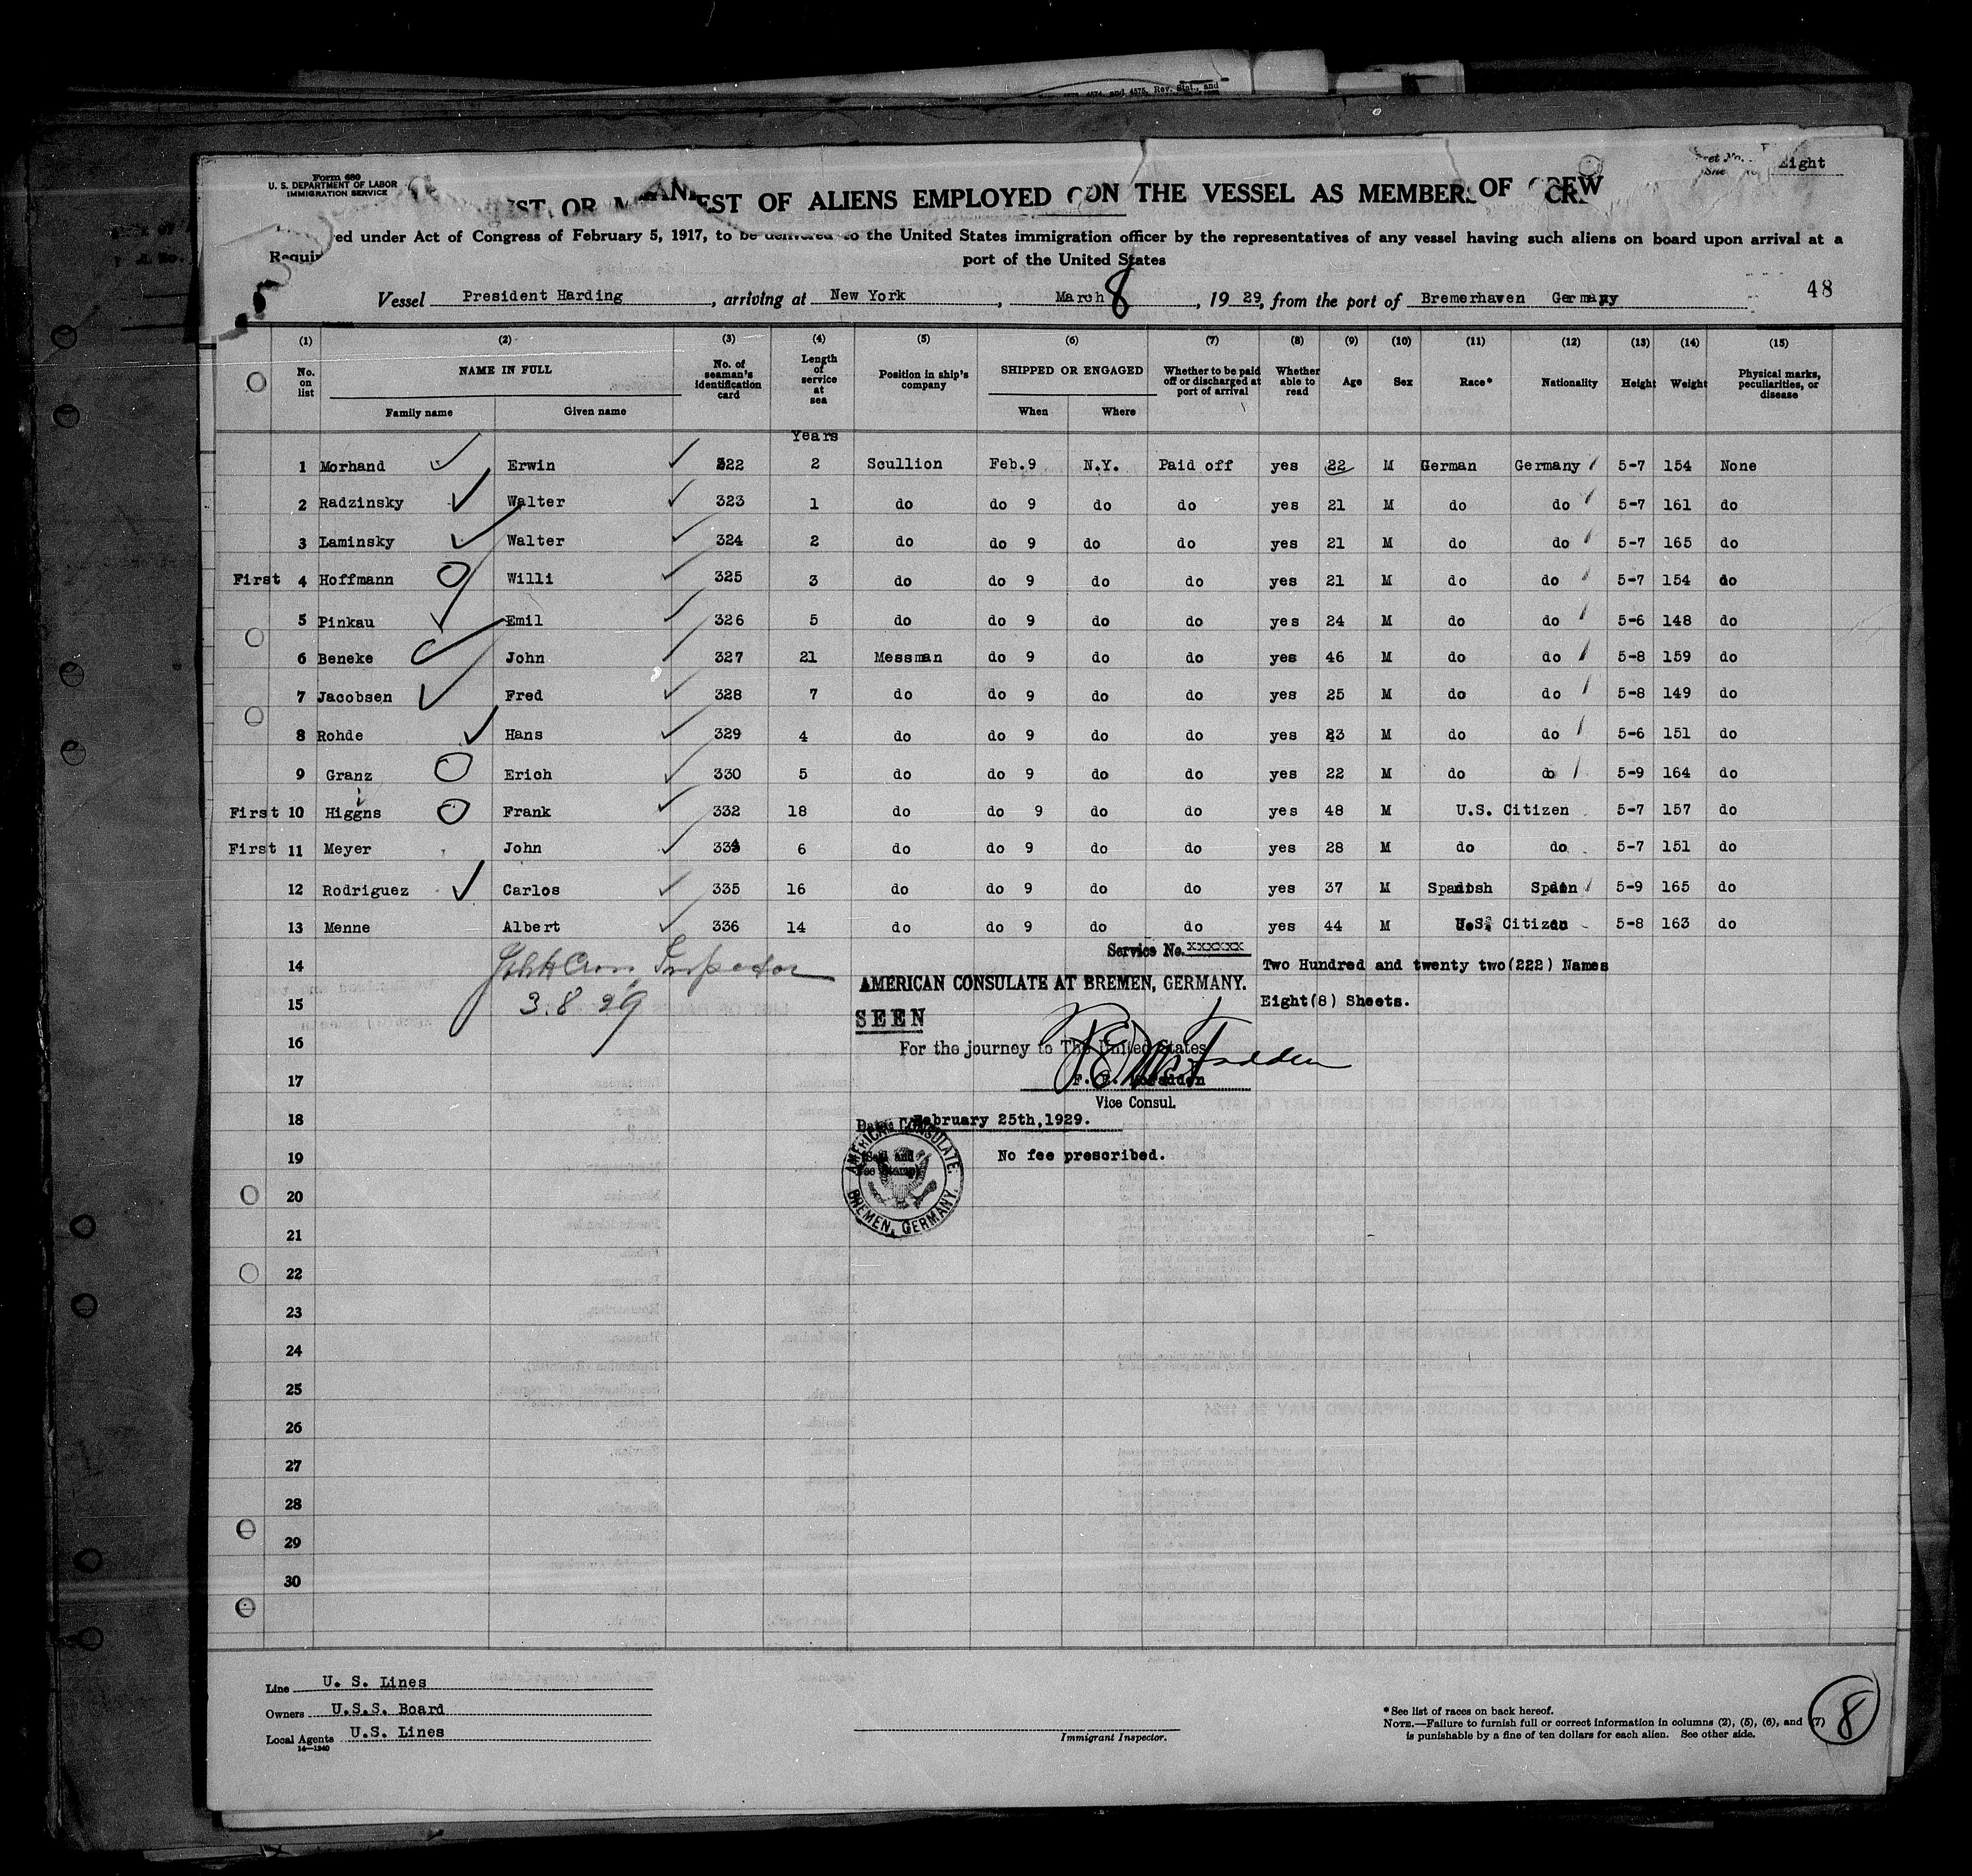 4574, and 4575, Rev. Stat., and
Form 680
U. S. DEPARTMENT OF LABOR
IMMIGRATION SERVICE
Eight
OF ALIENS EMPLOYED ON THE VESSEL AS MEMBERS OF CREW
under Act of Congress of February 5, 1917, to be delivered to the United States immigration officer by the representatives of any vessel having such aliens on board upon arrival at a
port of the United States
Vessel President Harding, arriving at New York, March 8, 1929, from the port of Bremerhaven Germany 48
(1) (2) (3) (4) (5) (6) (7) (8) (9) (10) (11) (12) (13) (14) (15)
No. on list NAME IN FULL Family name Given name No. of seaman's identification card Length of service at sea Position in ship's company SHIPPED OR ENGAGED When Where Whether to be paid off or discharged at port of arrival Whether able to read Age Sex Race* Nationality Height Weight Physical marks, peculiarities, or disease
Years
1 Morhand Erwin 322 2 Scullion Feb.9 N.Y. Paid off yes 22 M German Germany 5-7 154 None
2 Radzinsky Walter 323 1 do do 9 do do yes 21 M do do 5-7 161 do
3 Laminsky Walter 324 2 do do 9 do do yes 21 M do do 5-7 165 do
First 4 Hoffmann Willi 325 3 do do 9 do do yes 21 M do do 5-7 154 do
5 Pinkau Emil 326 5 do do 9 do do yes 24 M do do 5-6 148 do
6 Beneke John 327 21 Messman do 9 do do yes 46 M do do 5-8 159 do
7 Jacobsen Fred 328 7 do do 9 do do yes 25 M do do 5-8 149 do
8 Rohde Hans 329 4 do do 9 do do yes 23 M do do 5-6 151 do
9 Granz Erich 330 5 do do 9 do do yes 22 M do do 5-9 164 do
First 10 Higgns Frank 332 18 do do 9 do do yes 48 M U.S. Citizen 5-7 157 do
First 11 Meyer John 334 6 do do 9 do do yes 28 M do do 5-7 151 do
12 Rodriguez Carlos 335 16 do do 9 do do yes 37 M Spanish Spain 5-9 165 do
13 Menne Albert 336 14 do do 9 do do yes 44 M U.S. Citizen 5-8 163 do
Service No. xxxxxx
14 Inspector Two Hundred and twenty two(222) Names
AMERICAN CONSULATE AT BREMEN, GERMANY.
15 3.8 29 Eight(8) Sheets.
SEEN
16 For the journey to The United States
17 F. E. McFadden
Vice Consul.
18 Date: February 25th,1929.
19 (Seal and No fee prescribed.
fee stamp)
AMERICAN CONSULATE. BREMEN, GERMANY.
20
21
22
23
24
25
26
27
28
29
30
Line U. S. Lines
Owners U.S.S. Board
Local Agents U.S. Lines
14—1240
Immigrant Inspector.
*See list of races on back hereof.
NOTE.—Failure to furnish full or correct information in columns (2), (5), (6), and (7)
is punishable by a fine of ten dollars for each alien. See other side.
8